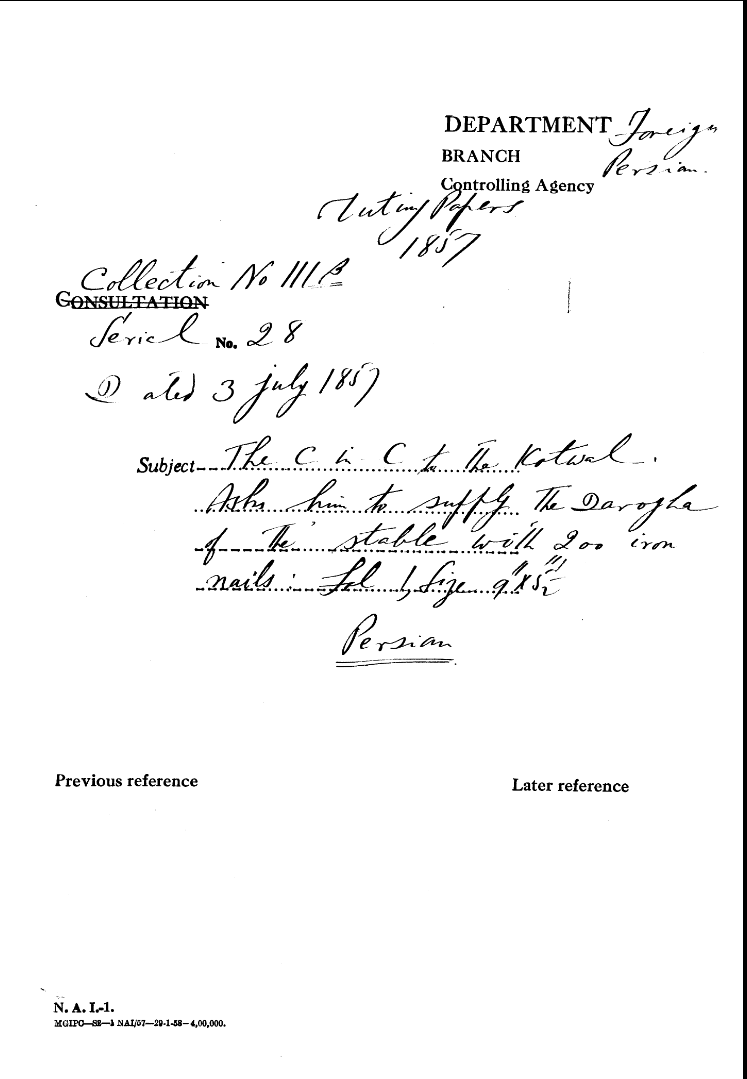 DEPARTMENT Foreign
BRANCH Persian.
Controlling Agency
Mutiny Papers
1857
Collection No 111 B
CONSULTATION
Serial No. 28
Dated 3 July 1857
Subject The C in C to the Kotwal.
Asks him to supply the Darogha
of the stable with 200 iron
nails : Fol 1, Size 9"x5½"
Persian
Previous reference
Later reference
N. A. I.-1.
MGIPC—S2—1 NAI/57—29-1-58—4,00,000.